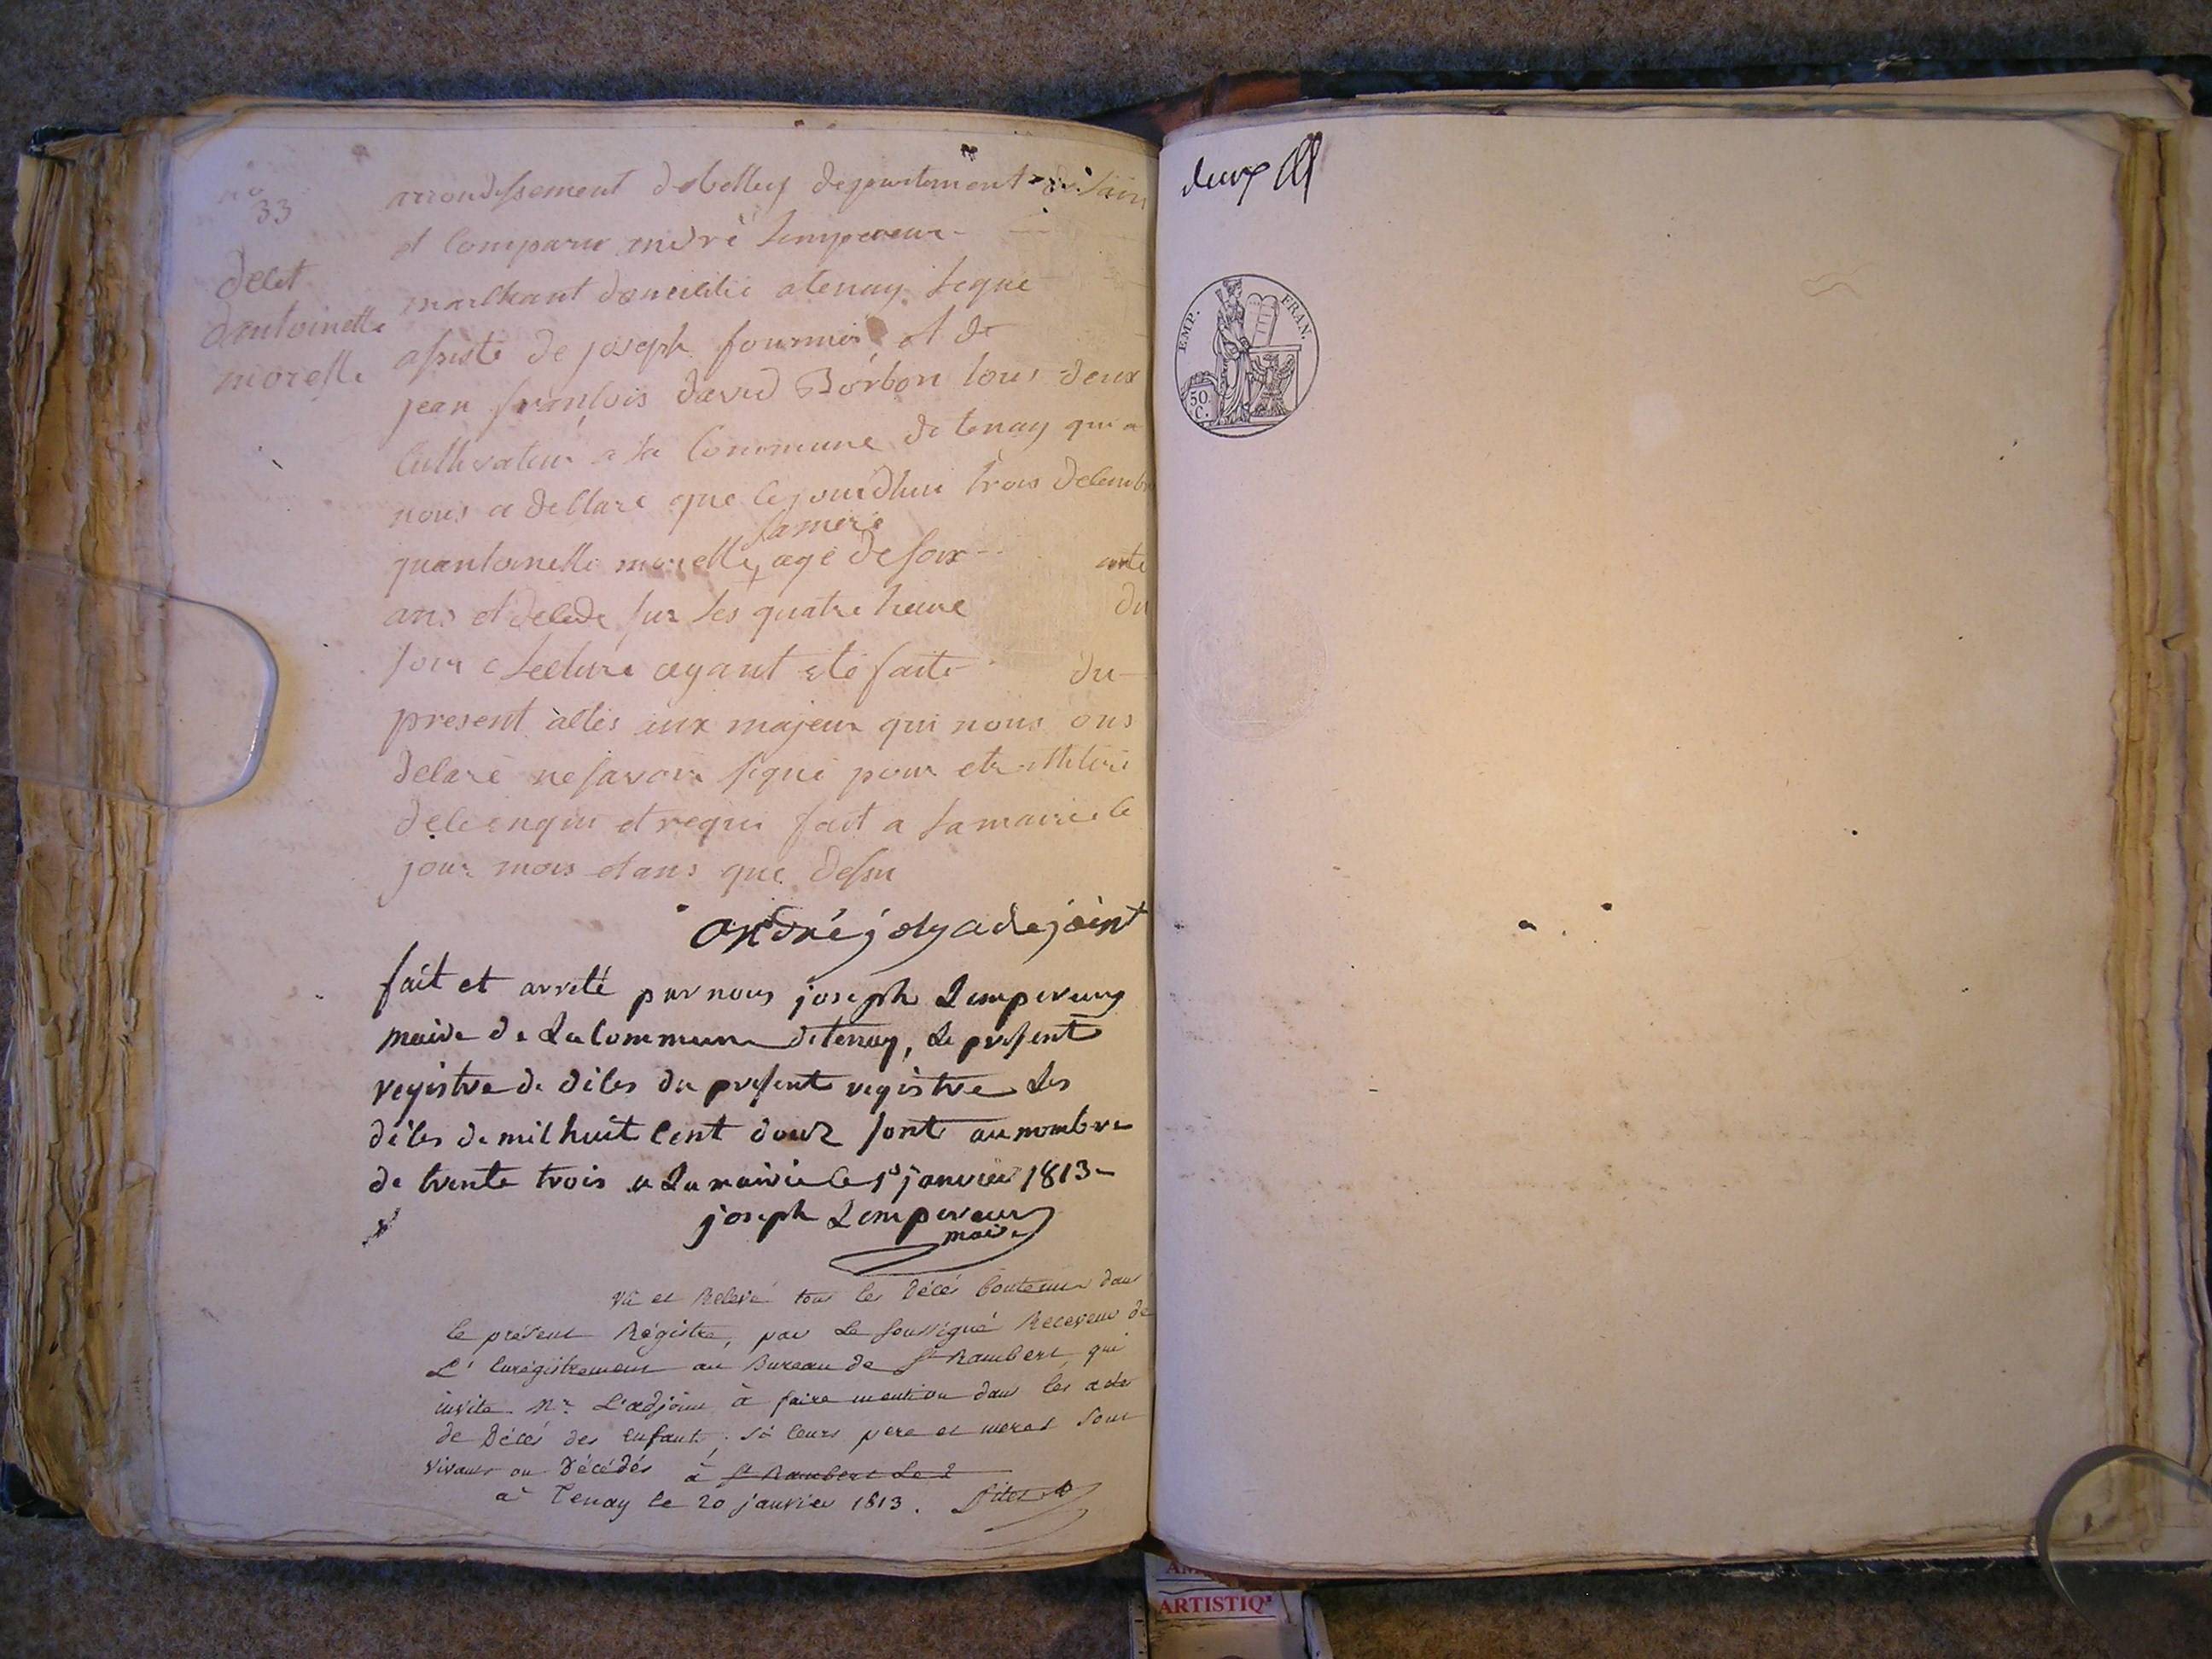 no
33
delet
dantoinette
morelle
arrondissement debelley departement de lain
et Comparu endré lempereur
marchant domicilié atenay lequé
assisté de joseph fournier et de
jean franlois david Borbon tous deux
Cultivateur a la Commune de tenay qui a
nous a dellaré que cejourdhui trois delembre
lamere
quantoinette morelle, agé de soix ante
ans et delede sur les quatre heure du
soir Lecture ayant eté faite du
present altes aux majeur qui nous ons
delaré ne savoir signé pour etre
de requi fait a la mairie le
jour mois et ans que dessu
andré joly adejoint
fait et arreté par nous joseph Lempereur
maire de La Commune de tenay, Le present
registre de déles du present registre Les
déles de mil huit Cent douz sont au nombre
de trente trois a La mairie le 1r janvier 1813
joseph Lempereur
maire
Vû et Relevé tous les Décés Contenus dans
le présent Régistre, par Le soussigné Receveur de
L'Enregistrement au Bureau de St Rambert, qui
invite Mr L'adjoint à faire mention dans les actes
de Décés des enfants, si leurs pere et meres sont
vivants ou Décédés à St Rambert Le 2
à Tenay le 20 janvier 1813.
deux
EMP. FRAN.
50
C.
ARTISTIQ